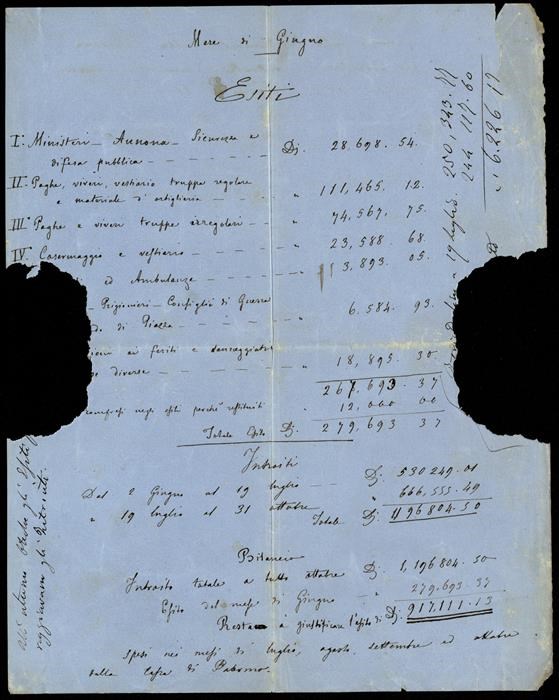 Mese di Giugno
Esiti
I. Ministeri - Annona - Sicurezza e
difesa pubblica - - - - D. 28,698. 54.
II. Paghe, viveri, vestiario truppe regolari
e materiale d'artiglieria - - - " 111,465. 12.
III. Paghe e viveri truppe irregolari - - " 74,567. 75.
IV. Casermaggio e vestiario - - - 23,588 68.
ed Ambulanze - - - " 3,893 05.
Prigionieri - Consigli di Guerra
di Piazza - - - " 6.584. 93.
ai feriti e danneggiati
diverse - - - " 18,895. 30
267,693. 37
negli esiti perchè restituiti " 12,000 00
Totale Esito D. 279,693 37
Introiti
Dal 2 Giugno al 19 luglio - - D. 530249.01
" 19 luglio al 31 ottobre - - " 666,555.49
Totale D. 1196804.50
Bilancio
Introito totale a tutto ottobre D. 1,196804. 50
Esito del mese di Giugno - " 279,693. 37
Resta a giustificare l'esito di D. 917,111.13
Spesi nei mesi di luglio, agosto, settembre ed ottobre
dalla Cassa di Palermo.
19 luglio. 250,343.77
244 117. 60
6226 17
gli Esiti
raggiungano gli Introiti.